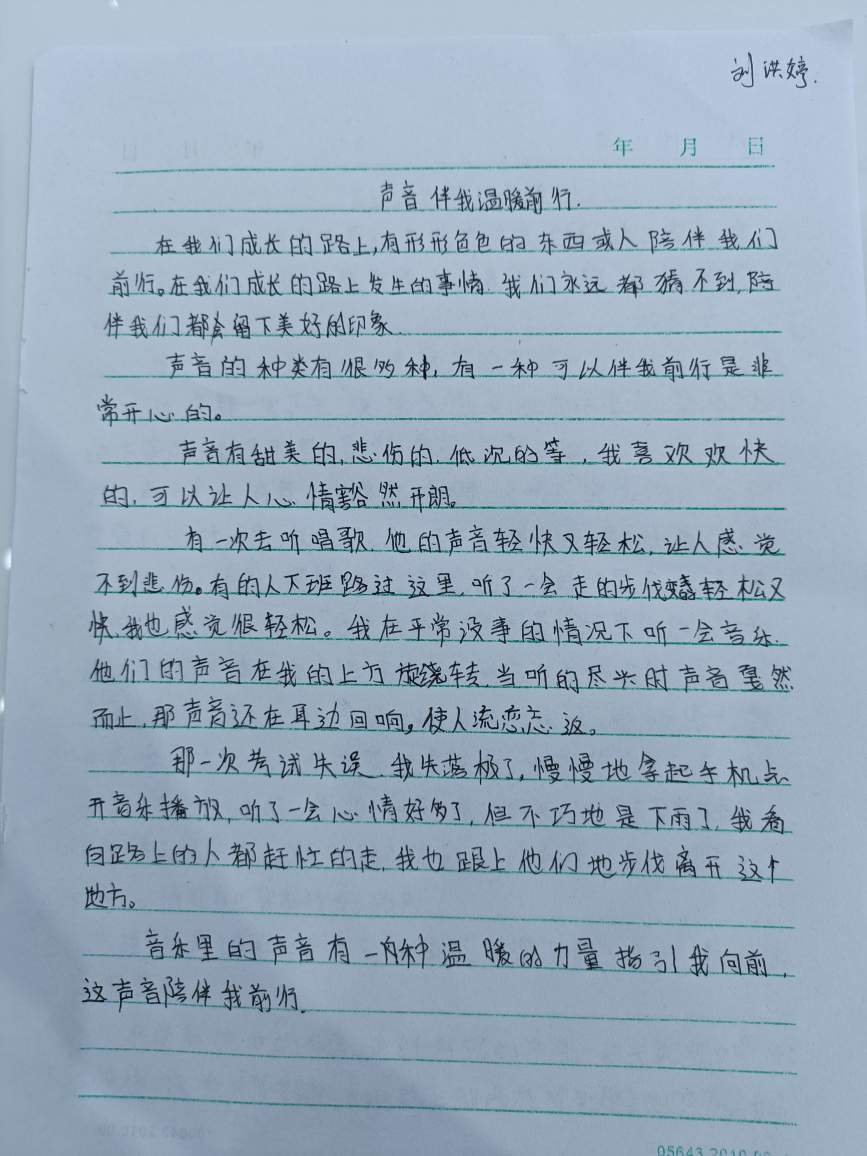 刘洪婷.
年 月 日
声音伴我温暖前行.
在我们成长的路上,有形形色色的东西或人陪伴我们
前行。在我们成长的路上发生的事情,我们永远都猜不到,陪
伴我们都会留下美好的印象.
声音的种类有很多种,有一种可以伴我前行是非
常开心的。
声音有甜美的,悲伤的,低沉的等,我喜欢欢快
的,可以让人心情豁然开朗。
有一次去听唱歌,他的声音轻快又轻松,让人感觉
不到悲伤。有的人下班路过这里,听了一会走的步伐轻松又
快,我也感觉很轻松。我在平常没事的情况下听一会音乐.
他们的声音在我的上方旋绕转,当听的尽兴时声音戛然
而止,那声音还在耳边回响,使人流恋忘返。
那一次考试失误,我失落极了,慢慢地拿起手机点
开音乐播放,听了一会心情好多了,但不巧地是下雨了,我看
向路上的人都赶忙的走,我也跟上他们地步伐离开这个
地方。
音乐里的声音有一种温暖的力量指引我向前,
这声音陪伴我前行.